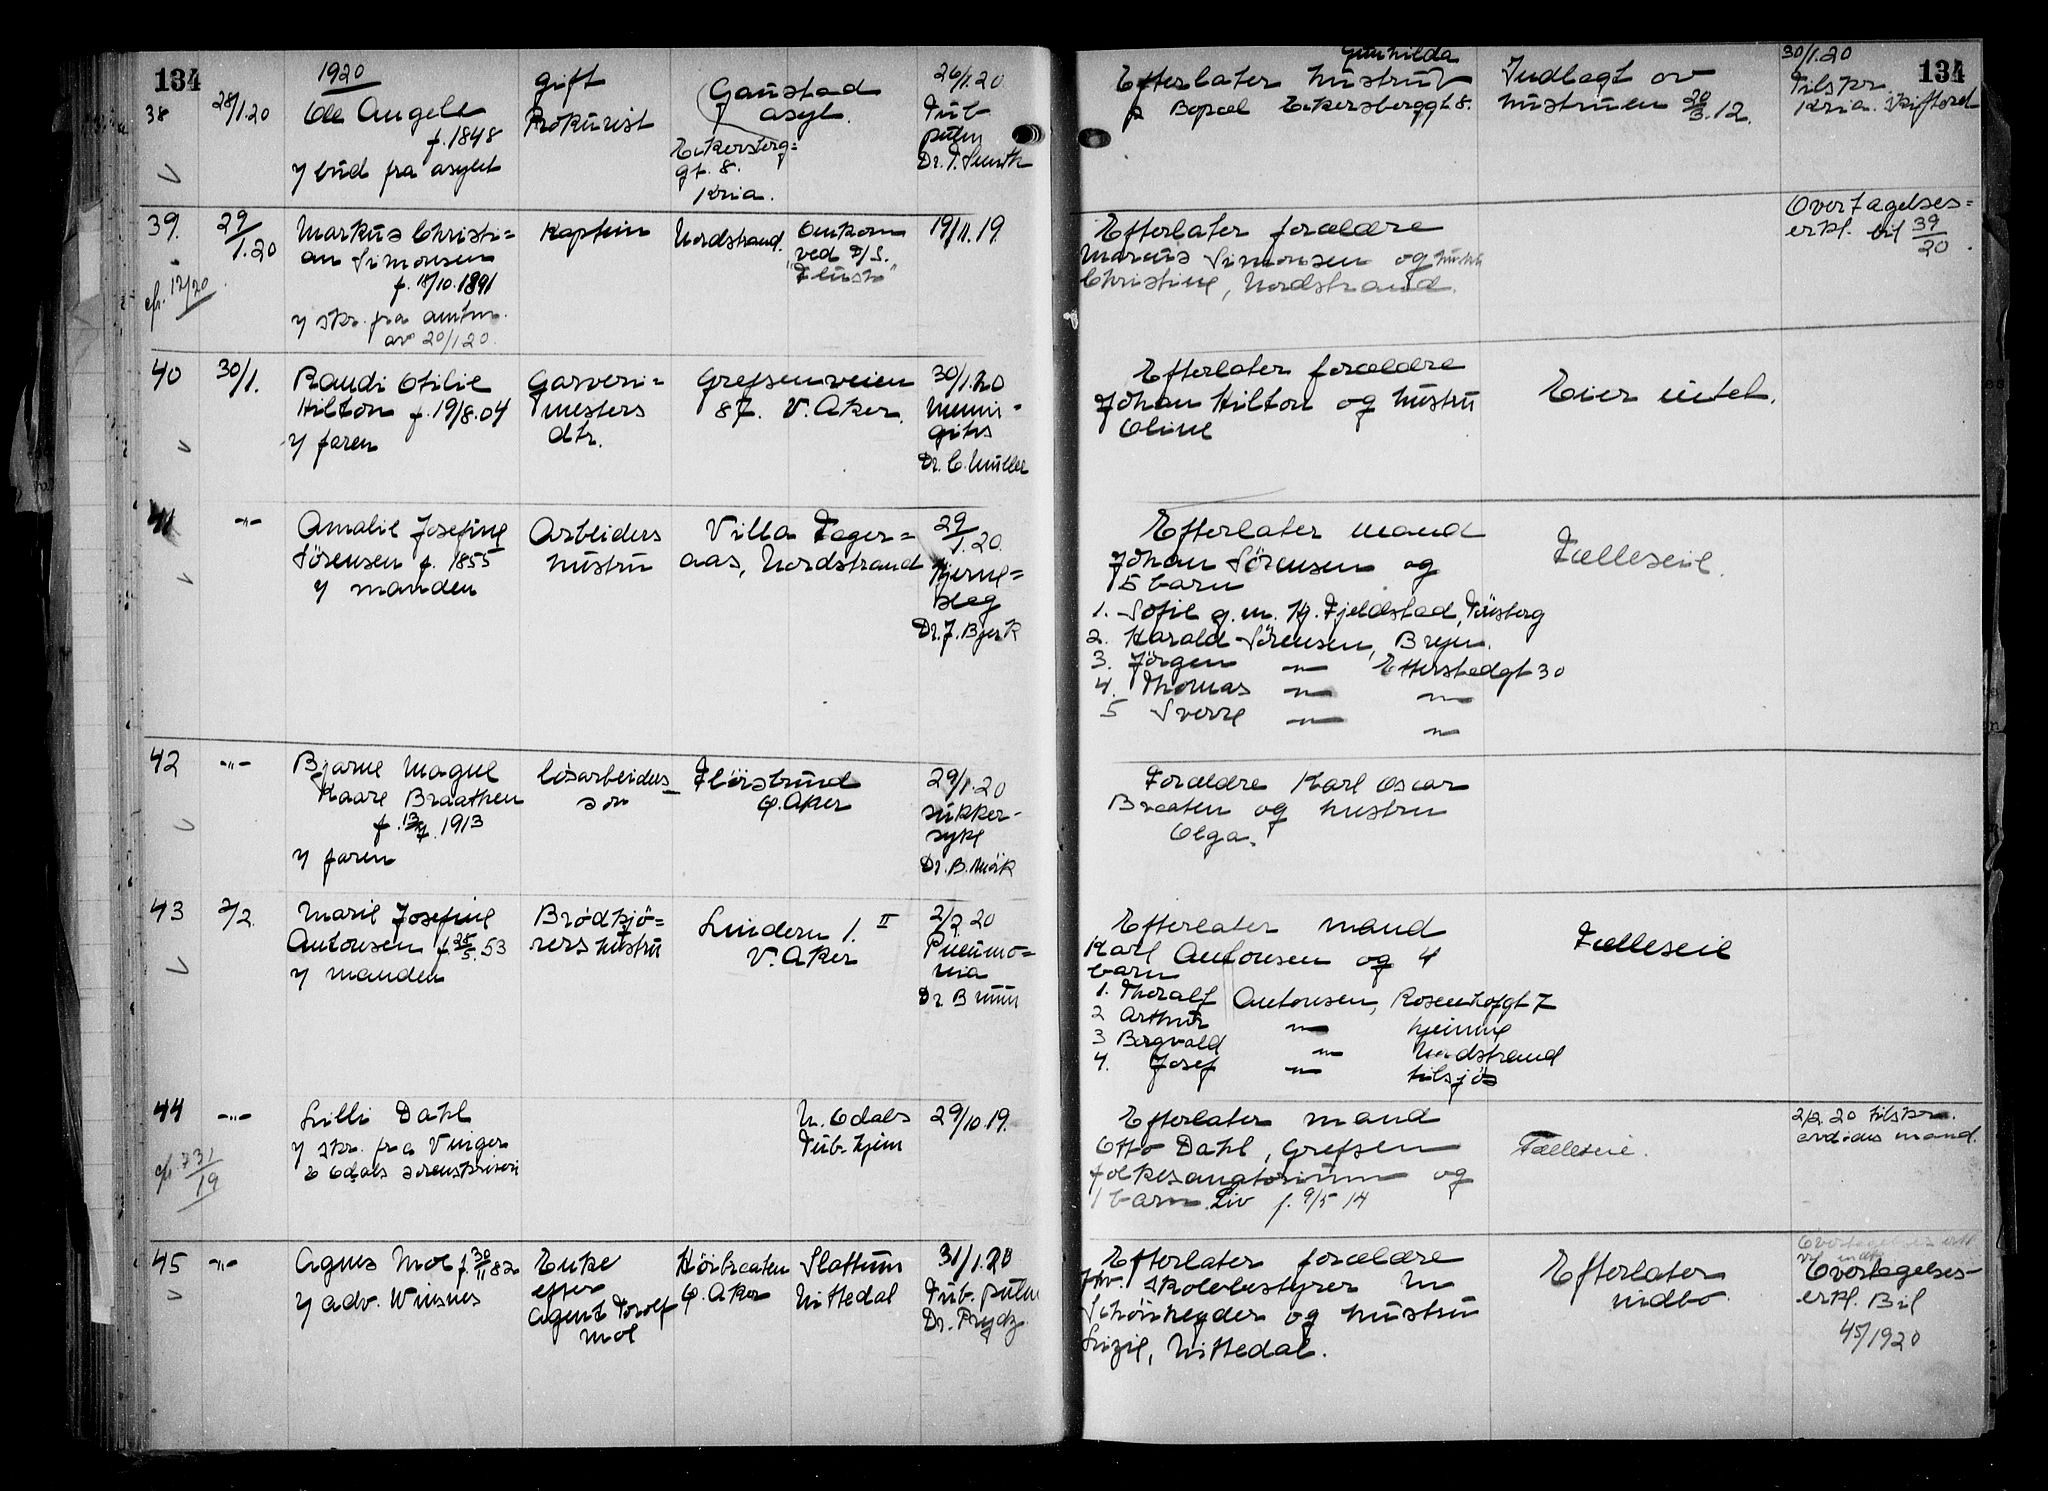 134
1920
38
28/1.20
Ole Angell
f. 1848
v/ bud fra asylet
gift
Prokurist
Gaustad
asyl.
Eckersberg=
gt. 8.
Kria.
26/1.20
Tub
pulm
Dr. T. Smith
39.
29/1.20
cfr. 12/20
Markus Christi=
an Simonsen
f. 18/10.1891
v/ skr. fra amtm.
av 20/1 20.
Kaptein
Nordstrand.
Omkom
ved D/S.
19/11.19.
40
30/1.
Randi Otilie
Hilton f. 19/8.04
v/ faren
Gasveri=
mesters
dtr.
Grefsenveien
87. V. Aker.
30/1.20
Menin=
gitis
Dr. C. Müller
41
-"-
Amalie Josefine
Sørensen f. 1855
v/ manden
Arbeiders
hustru
Villa Fager=
aas, Nordstrand
29/1.20.
Hjerne=
slag
Dr. J. Bjerk
42
-"-
Bjarne Magne
Kaare Braathen
f. 13/7.1913
v/ faren
Løsarbeiders
søn
Fløisbund
Ø. Aker
29/1.20
Sukker-
syke
Dr. B. Mørk
43
2/2.
Marie Josefine
Antonsen f. 25/5.53
v/ manden
Brødkjø=
rers hustru
Lindern 1. II
V. Aker
2/2 20
Pneumo=
nia
Dr Bruun
44
-"-
cfr 731/19
Lilli Dahl
v/ skr. fra Vinger
& Odals sorenskriveri
N. Odals
Tub. hjem
29/10 19.
45
-"-
Agnes Moe f. 30/11 82
v/ adv. Winsnes
Enke
efter
agent Torolf
Moe
Høibraaten
Ø. Aker
Slattum
Nittedal
31/1.20
Tub. pulm
Dr. Prydz
134
Gunhilda
Efterlater hustru
p Bopæl Eckersberggt 8.
Indlagt av
hustruen 20/3.12.
30/1.20
Tilskr.
Kria. Skifteret
Efterlater forældre
Marcus Simonsen og hustru
Christine, Nordstrand.
Overtagelses=
erkl. bil 39/20
Efterlater forældre
Johan Hilton og hustru
Oline
Eier intet.
Efterlater mand
Johan Sørensen og
5 barn
1. Sofie g. m. Hj. Fjeldstad, Tønsberg
2. Harald Sørensen, Bryn.
3. Jørgen -"- Etterstadgt 30
4. Thomas -"- -"-
5 Sverre -"- -"-
Fælleseie.
Forældre Karl Oscar
Braaten og hustru
Olga.
Efterlater mand
Karl Antonsen og 4
barn
1. Thoralf Antonsen, Rosenhofgt 7
2 Arthur -"- hjemme
3 Bergvald -"- Nordstrand
4. Josef -"- tilsjøs
Fælleseie
Efterlater mand
Otto Dahl, Grefsen
folkesanatorium og
1 barn. Liv f. 9/5 14
Fælleseie.
2/2 20 tilskr.
avdødes mand.
Efterlater forældre
fhv. skolebestyrer M
Schönheyder og hustru
Lizzie, Nittedal.
Efterlater
indbo.
Overtagelses-
erkl. Bil
45/1920